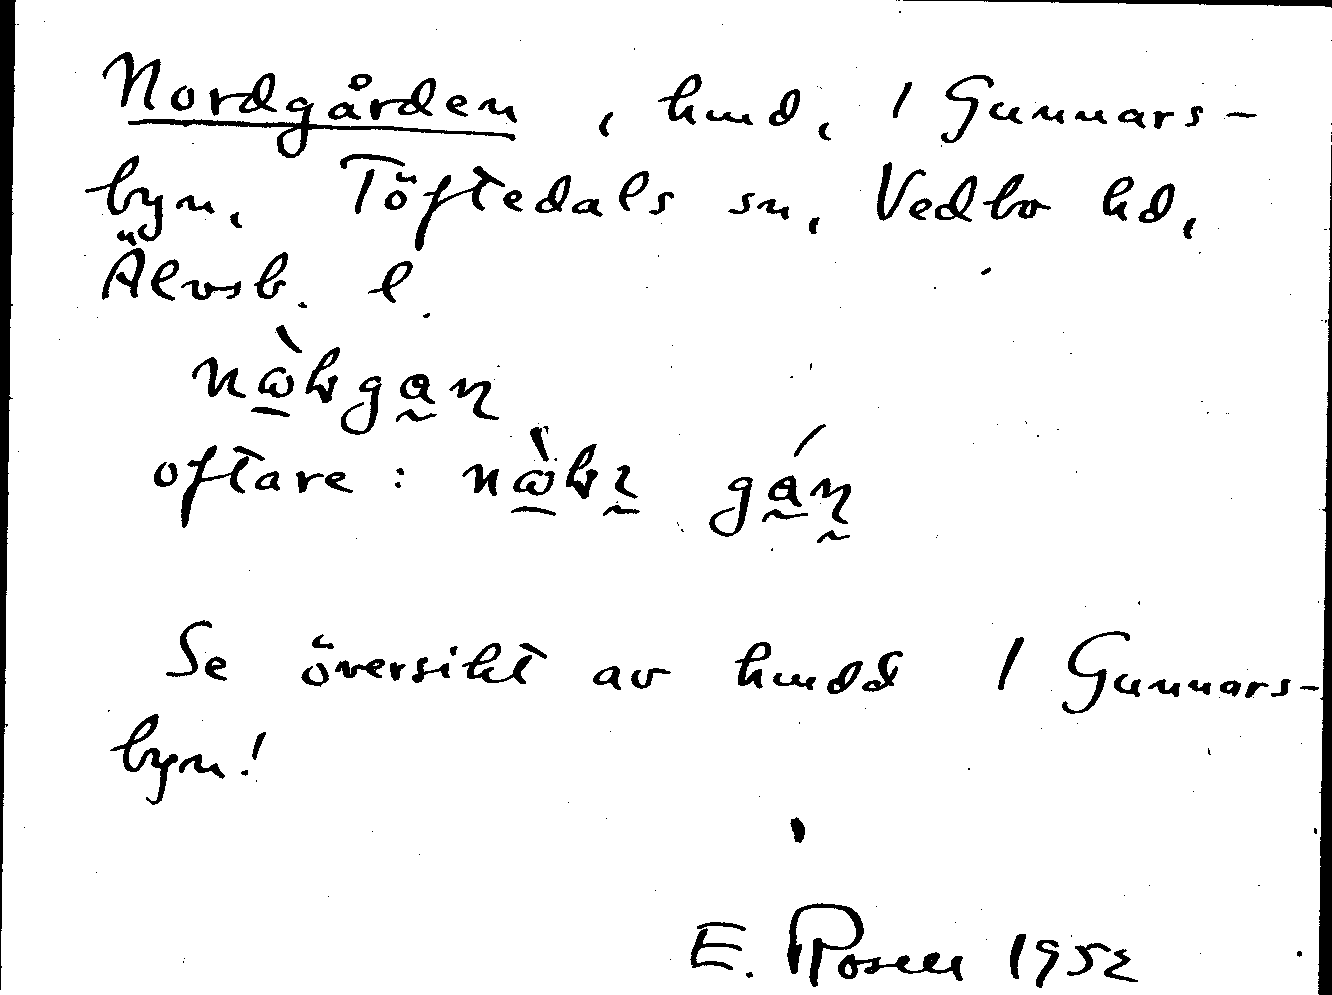 Nordgården, hmd, 1 Gunnars-
byn, Töftedals sn, Vedbo hd,
Älvsb. l.
oftare:
Se översikt av hmdd 1 Gunnars-
byn!
E. Rosell 1952